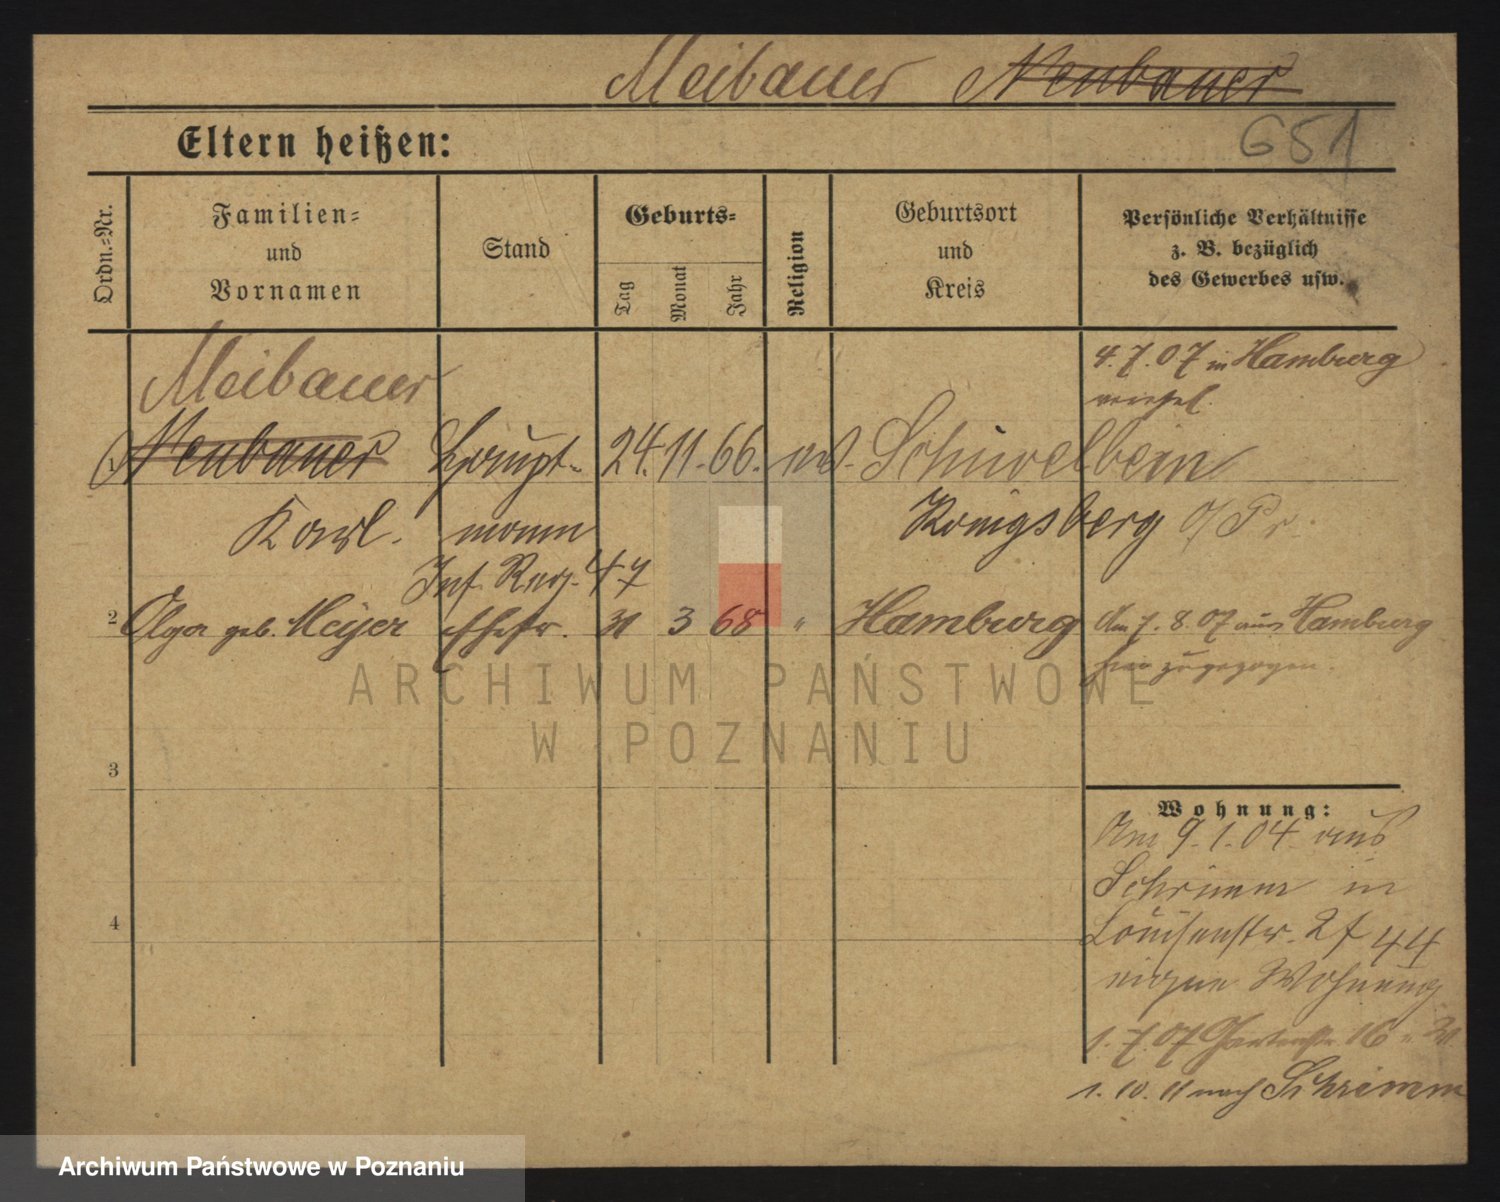 Meibauer Neubauer
651
Eltern heißen:
Ordn.=Nr.
Familien=
und
Vornamen
Stand
Geburts=
Tag
Monat
Jahr
Religion
Geburtsort
und
Kreis
Persönliche Verhältnisse
z. B. bezüglich
des Gewerbes usw.
4. 7. 07 in Hamburg
Meibauer
1 Neubauer Haupt- 24. 11. 66. ev. Schivelbein
Karl. mann Königsberg O/Pr.
Inf. Reg. 47
2 Olga geb. Meyer Ehefr. 31 3 68 " Hamburg Am 7. 8. 07 aus Hamburg
hier zugezogen.
3
Wohnung:
Am 9. 1. 04 aus
Schrimm in
4
Louisenstr. 2f 44
eigene Wohnung
1. 7. 07 Gartenstr. 16
1. 10. 11 nach Schrimm
ARCHIWUM PAŃSTWOWE
W POZNANIU
Archiwum Państwowe w Poznaniu